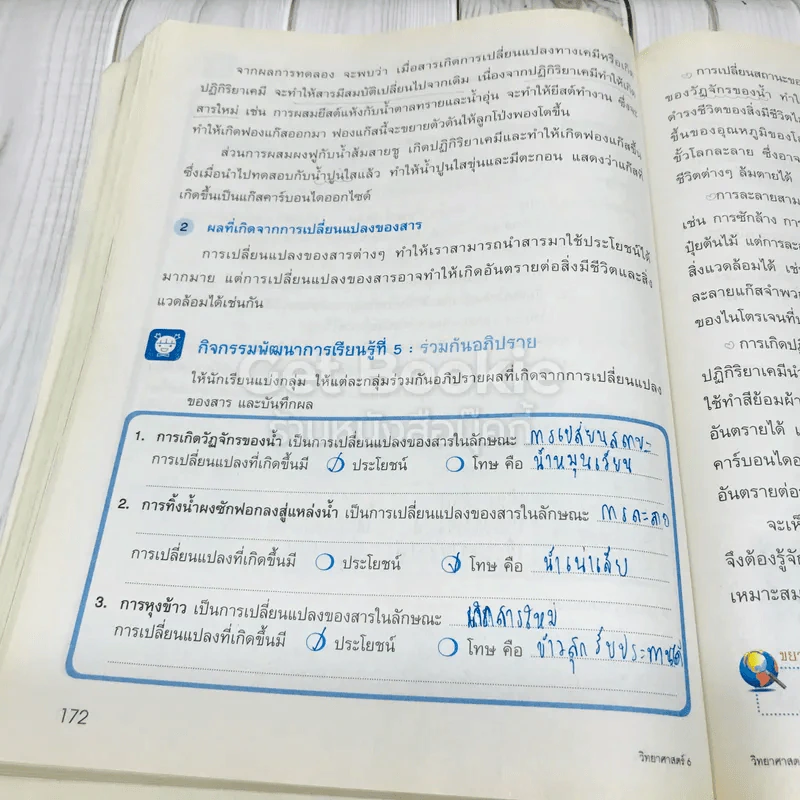 จากผลการทดลอง จะพบว่า เมื่อสารเกิดการเปลี่ยนแปลงทางเคมีหรือเกิด
ปฏิกิริยาเคมี จะทำให้สารมีสมบัติเปลี่ยนไปจากเดิม เนื่องจากปฏิกิริยาเคมีทำให้เกิด
สารใหม่ เช่น การผสมยีสต์แห้งกับน้ำตาลทรายและน้ำอุ่น จะทำให้ยีสต์ทำงาน ซึ่งจะ
ทำให้เกิดฟองแก๊สออกมา ฟองแก๊สนี้จะขยายตัวดันให้ลูกโป่งพองโตขึ้น
ส่วนการผสมผงฟูกับน้ำส้มสายชู เกิดปฏิกิริยาเคมีและทำให้เกิดฟองแก๊สขึ้น
ซึ่งเมื่อนำไปทดสอบกับน้ำปูนใสแล้ว ทำให้น้ำปูนใสขุ่นและมีตะกอน แสดงว่าแก๊สที่
เกิดขึ้นเป็นแก๊สคาร์บอนไดออกไซด์
2 ผลที่เกิดจากการเปลี่ยนแปลงของสาร
การเปลี่ยนแปลงของสารต่างๆ ทำให้เราสามารถนำสารมาใช้ประโยชน์ได้
มากมาย แต่การเปลี่ยนแปลงของสารอาจทำให้เกิดอันตรายต่อสิ่งมีชีวิตและสิ่ง
แวดล้อมได้เช่นกัน
กิจกรรมพัฒนาการเรียนรู้ที่ 5 : ร่วมกันอภิปราย
ให้นักเรียนแบ่งกลุ่ม ให้แต่ละกลุ่มร่วมกันอภิปรายผลที่เกิดจากการเปลี่ยนแปลง
ของสาร และบันทึกผล
Get Bookie
ร้านหนังสือบุ๊คกี้
1. การเกิดวัฏจักรของน้ำ เป็นการเปลี่ยนแปลงของสารในลักษณะ การเปลี่ยนสถานะ
การเปลี่ยนแปลงที่เกิดขึ้นมี ประโยชน์ โทษ คือ น้ำหมุนเวียน
2. การทิ้งน้ำผงซักฟอกลงสู่แหล่งน้ำ เป็นการเปลี่ยนแปลงของสารในลักษณะ การละลาย
การเปลี่ยนแปลงที่เกิดขึ้นมี ประโยชน์ โทษ คือ น้ำเน่าเสีย
3. การหุงข้าว เป็นการเปลี่ยนแปลงของสารในลักษณะ เกิดสารใหม่
การเปลี่ยนแปลงที่เกิดขึ้นมี ประโยชน์ โทษ คือ ข้าวสุก รับประทานได้
172
วิทยาศาสตร์ 6
การเปลี่ยนสถานะขอ
ของวัฏจักรของน้ำ ทำให้
ดำรงชีวิตของสิ่งมีชีวิต
ขึ้นของอุณหภูมิของโ
ขั้วโลกละลาย ซึ่งอาจ
ชีวิตต่างๆ ล้มตายได้
การละลายสาม
เช่น การซักล้าง กา
ปุ๋ยต้นไม้ แต่การละ
สิ่งแวดล้อมได้ เช่
ละลายแก๊สจำพว
ของไนโตรเจนที่ป
การเกิดป
ปฏิกิริยาเคมีนำ
ใช้ทำสีย้อมผ้า
อันตรายได้ เ
คาร์บอนไดอ
อันตรายต่อ
จะเห็
จึงต้องรู้จัก
เหมาะสม
ขยา
วิทยาศาสต